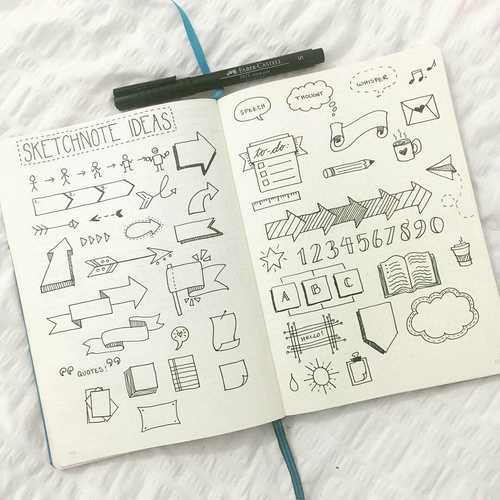 FABER-CASTELL
PITT artist pen
S
SKETCHNOTE IDEAS
1.
2.
3.
"QUOTES!"
SPEECH
THOUGHT
WHISPER
to-do:
1234567890
A B C
HELLO!